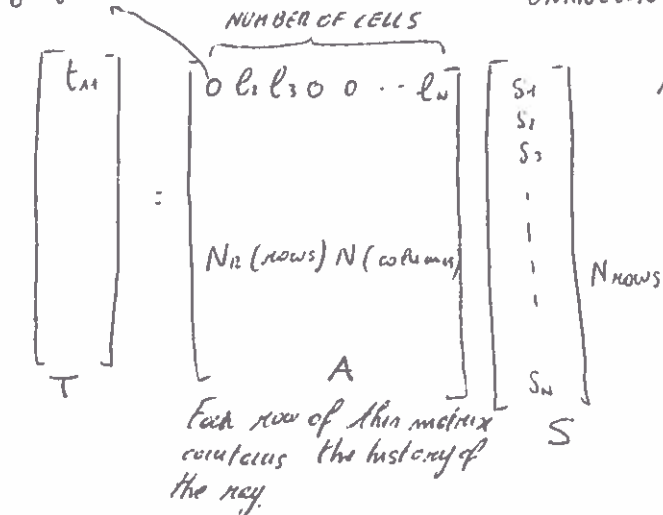 NUMBER OF CELLS
t₁₁ = 0 l₂ l₃ 0 0 ·· l_N S₁
S₂
S₃
N_R (rows) N (columns) N rows
S_N
T A S
Each row of this matrix
contains the history of
the ray.